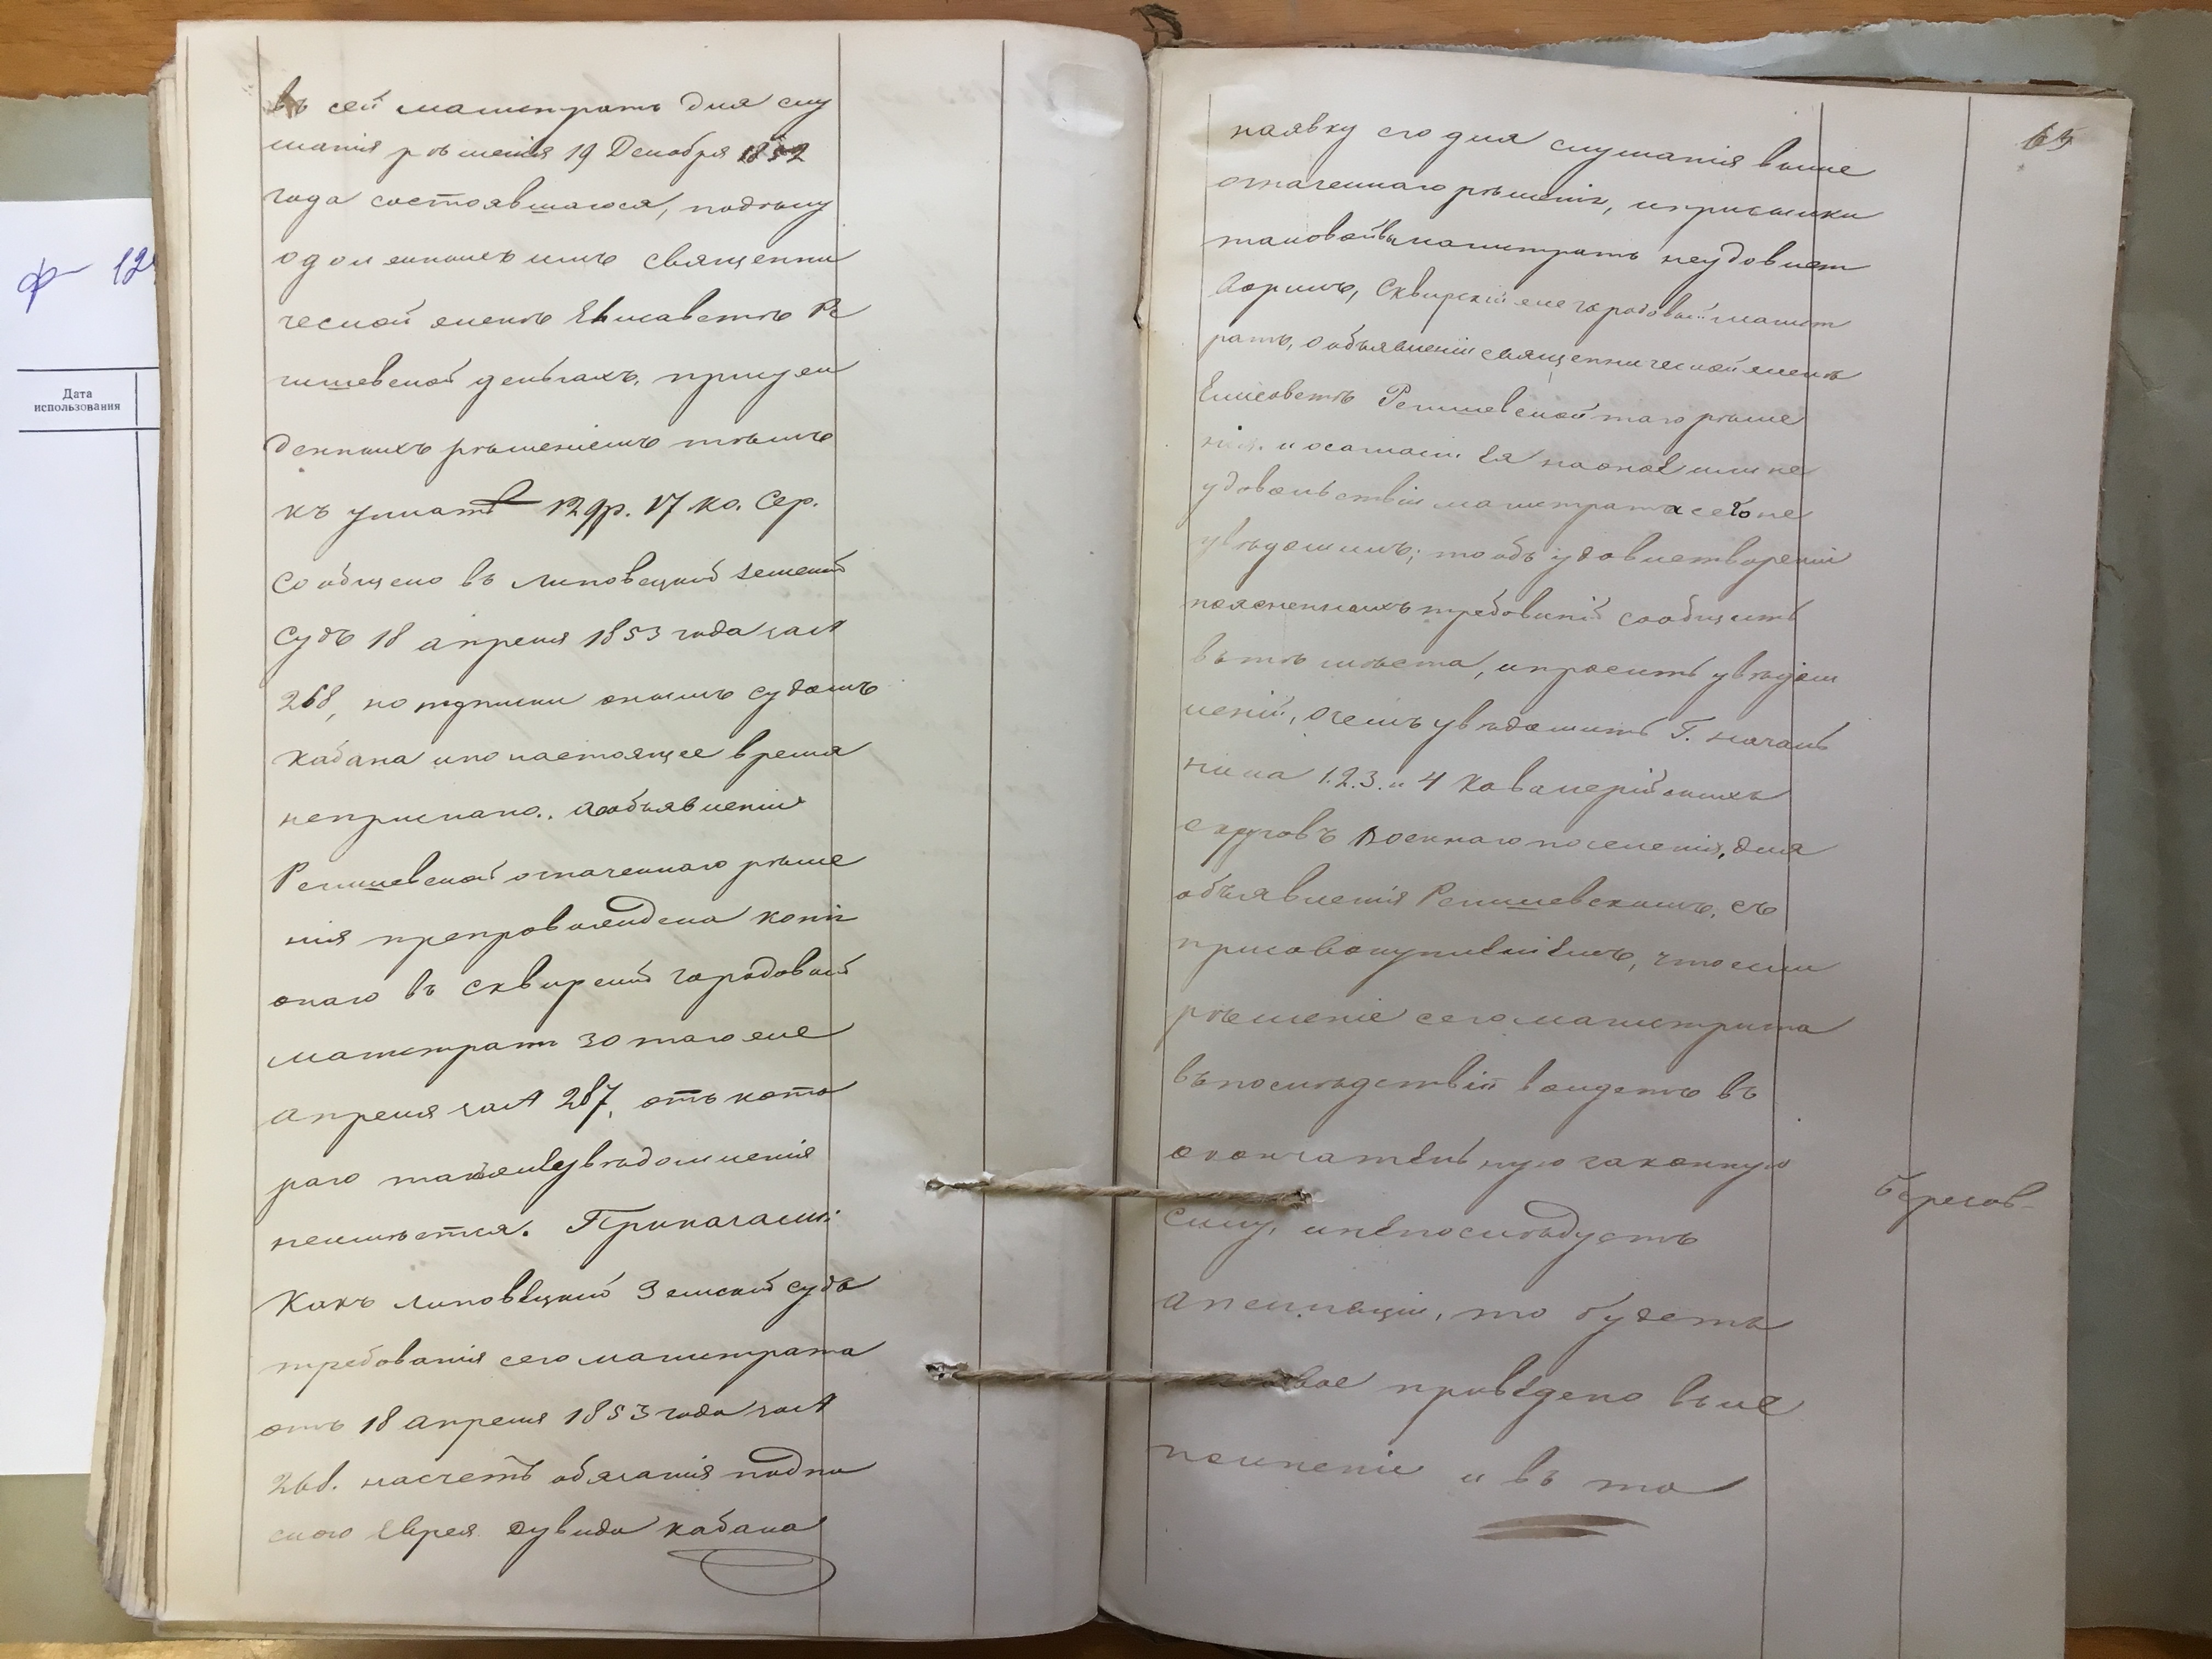 въ сей магистратъ для слу
шанія рѣшенія 19 Декабря 1852
года состоявшагося, по дѣлу
одолженныхъ имъ священни
ческой женѣ Елисаветѣ Ре
гишевской деньгахъ, присуж
денныхъ рѣшеніемъ тѣмъ
къ уплатѣ 129 р. 17 ко. сер.
сообщено въ Липовецкій Земскій
судъ 18 апреля 1853 года за №
268, но подписки онымъ судомъ
Кабана и по настоящее время
неприслано. а объявленіи
Регишевской означеннаго рѣше
нія препровождена копія
онаго въ Сквирскій городовый
магистратъ 30 того же
апреля за № 287, отъ кото
раго также увѣдомленія
неимѣется. Приказали:
Какъ Липовецкій Земскій судъ
требованія сего магистрата
отъ 18 апреля 1853 года за №
268. насчетъ обязанія подпи
скою еврея Дувида Кабана
Ф 12
Дата
использования
65
наявку его для слушанія выше
означеннаго рѣшенія, и присылки
таковой въ магистратъ неудовлет
ворилъ, Сквирскій же городовый магист
ратъ, о объявленіи священнической женѣ
Елисаветѣ Регишевской того рѣше
нія. и осогласіи Ея на оное или не
удовольствіи магистрата сего не
увѣдомилъ; то объ удовлетвореніи
поясненныхъ требованій сообщить
въ тѣ мѣста, и просить увѣдом
леній, о чемъ увѣдомить Г. началь
ника 1. 2. 3. и 4 Кавалерійскихъ
округовъ Военнаго поселенія, для
объявленія Регишевскимъ, съ
присовокупленіемъ, что если
рѣшеніе сего магистрата
въ послѣдствіи войдетъ въ
окончательную законную
силу, и непослѣдуетъ
апелляціи, то будетъ
таковое приведено въ ис
полненіе и въ то